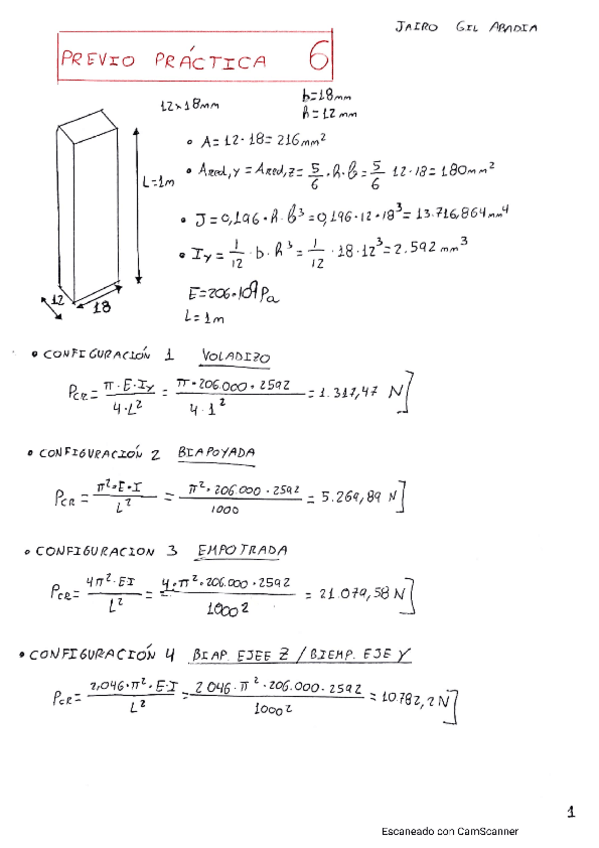 JAIRO GIL APADIA
PREVIO PRÁCTICA 6
12x18mm
b=18mm
h=12mm
• A=12·18=216mm²
L=1m
• Ared,y = Ared,z = 5/6 · h · b = 5/6 12·18=180mm²
• J=0,196·h·b³=0,196·12·18³=13.716,864mm⁴
• Iy = 1/12 · b · h³ = 1/12 · 18·12³=2.592 mm³
12
18
E=206·10⁹Pa
L=1m
• CONFIGURACIÓN 1 VOLADIZO
PCR = π·E·Iy / 4·L² = π·206.000·2592 / 4·1² = 1.317,47 N]
• CONFIGURACIÓN 2 BIAPOYADA
PCR = π²·E·I / L² = π²·206.000·2592 / 1000 = 5.269,89 N]
• CONFIGURACION 3 EMPOTRADA
PCR = 4π²·EI / L² = 4·π²·206.000·2592 / 1000² = 21.079,58 N]
• CONFIGURACIÓN 4 BIAP. EJEE Z / BIEMP. EJE Y
PCR = 2,046·π²·E·I / L² = 2046·π²·206.000·2592 / 1000² = 10.782,2 N]
1
Escaneado con CamScanner